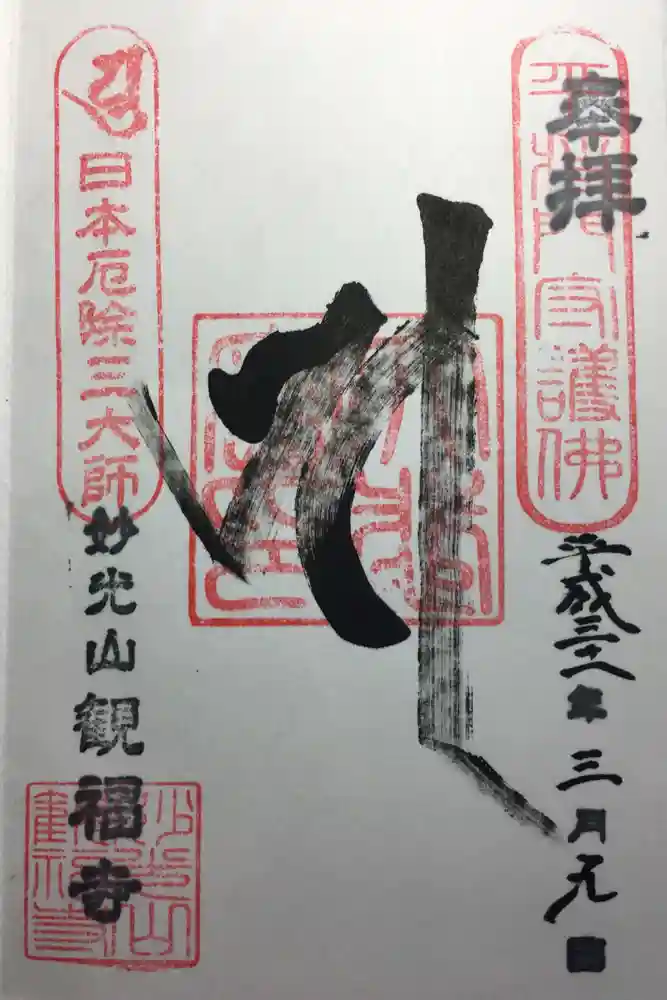 奉拝
平将門守護佛
平成三十一年三月九日
日本厄除三大師
妙光山観福寺
妙光山
觀福寺